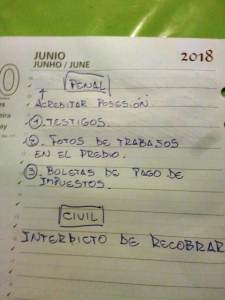 JUNIO 2018
JUNHO / JUNE
PENAL
ACREDITAR POSESIÓN
1. TESTIGOS.
2. FOTOS DE TRABAJOS
EN EL PREDIO.
3. BOLETAS DE PAGO DE
IMPUESTOS.
CIVIL
INTERDICTO DE RECOBRAR